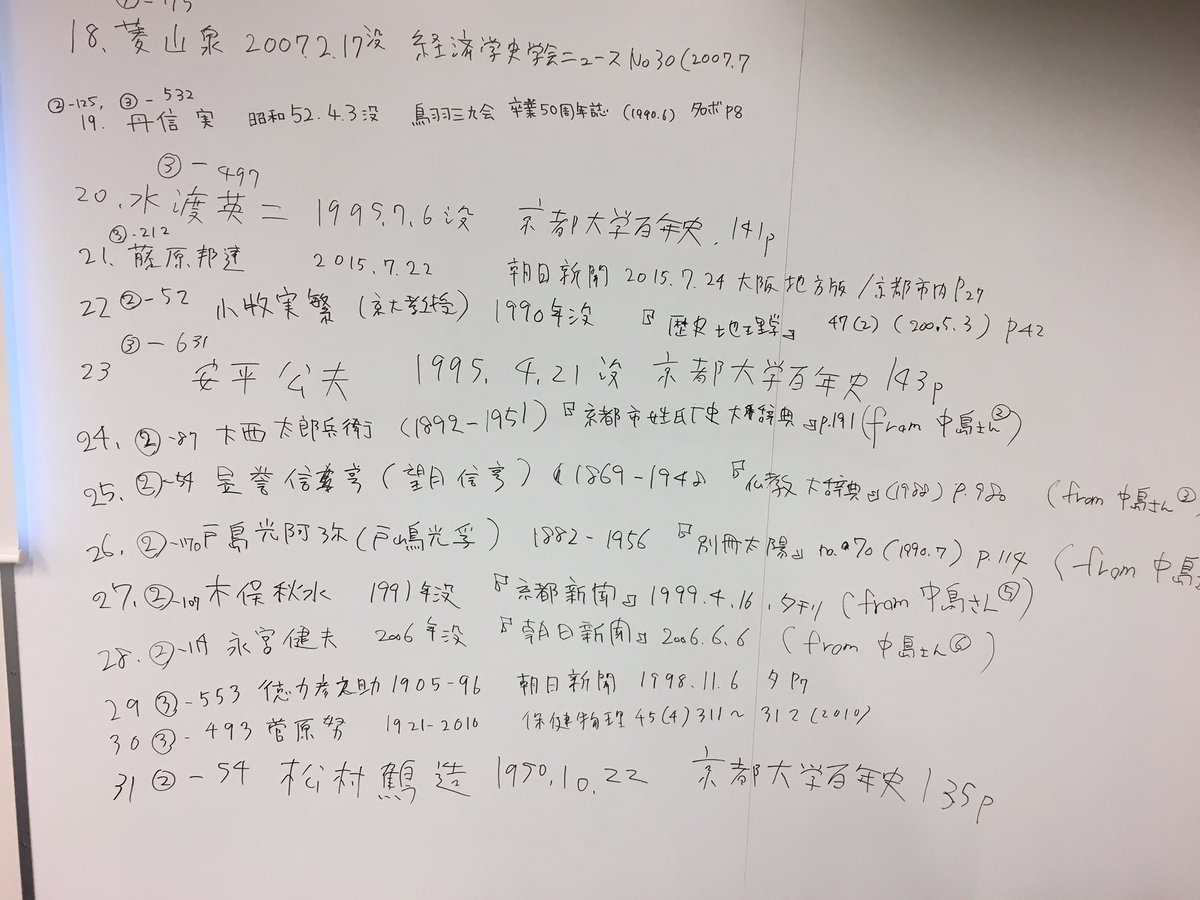 18. 菱山泉 2007.2.17没 経済学史学会ニュース No30(2007.7
②-125, ③-532
19. 丹信実 昭和52.4.3没 鳥羽三九会 卒業50周年誌 (1990.6) P8
③-497
20. 水渡英二 1995.7.6没 京都大学百年史. 141p
③-212
21. 藤原邦達 2015.7.22 朝日新聞 2015.7.24 大阪地方版/京都市内P27
22 ②-52 小牧実繁(京大教授) 1990年没 『歴史地理学』 47(2) (2005.3) P42
③-631
23 安平公夫 1995.4.21没 京都大学百年史 143p
24. ②-87 大西太郎兵衛 (1892-1951)『京都市姓氏歴史大辞典』p.191(from 中島さん②)
25. ②-54 昱誉信亨(望月信亨) (1869-1948 『仏教大辞典』(1988) P.980 (from 中島さん②)
26. ②-170 戸島光阿弥(戸嶋光孚) 1882-1956 『別冊太陽』no.70(1990.7) p.114 (from 中島
27. ②-109 木俣秋水 1991年没 『京都新聞』1999.4.16. 夕刊 (from 中島さん⑤)
28. ②-114 永宮健夫 2006年没 『朝日新聞』2006.6.6 (from 中島さん⑥)
29 ③-553 徳力彦之助 1905-96 朝日新聞 1998.11.6 夕P7
30 ③-493 菅原努 1921-2010 保健物理 45(4)311~312(2010)
31 ②-54 松村鶴造 1950.10.22 京都大学百年史 135p